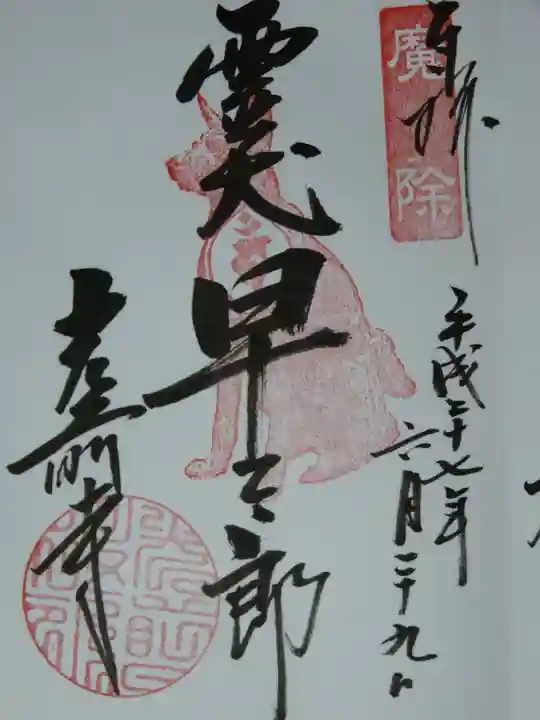 奉拝
魔除
平成二十七年
六月二十九日
霊犬
早太郎
光前寺